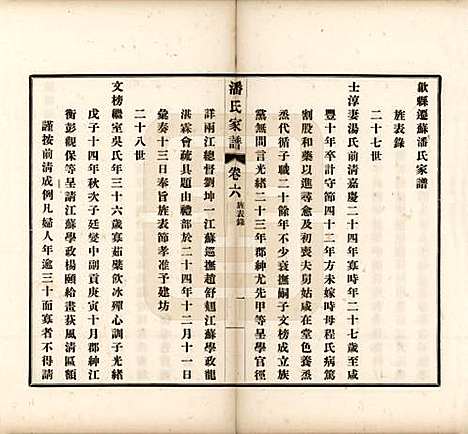 歙縣遷蘇潘氏家譜
旌表錄
二十七世
士淳妻湯氏前清嘉慶二十四年寡時年二十七歲至咸
豐十年守節四十二年方未嫁時母程氏病篤
割股和藥以進尋愈及初喪夫舅姑咸在堂色養烝
烝代循子職二十餘年不少衰撫嗣子文榜成立族
黨無間言光緒二十三年郡紳尤先甲等呈學官徑
潘氏家譜
卷六
旌表錄
一
詳兩江總督劉坤一江蘇巡撫趙舒翹江蘇學政龍
湛霖會疏具題由禮部於二十四年十二月十一日
彙奏十三日奉旨旌表節孝准予建坊
二十八世
文榜繼室吳氏年三十六歲寡茹蘗飲冰殫心調子光緒
戊子十四年秋次子廷燮中副貢庚寅十月郡紳江
衡彭觀保等呈請江蘇學政楊頤給畫荻風清區額
謹按前清成例凡婦人年逾三十而寡者不得請